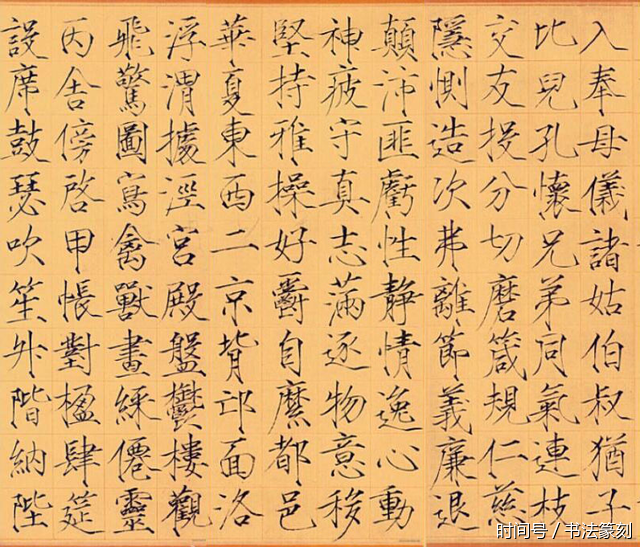 入奉母儀諸姑伯叔猶子
比兒孔懷兄弟同氣連枝
交友投分切磨箴規仁慈
隱惻造次弗離節義廉退
顛沛匪虧性静情逸心動
神疲守真志滿逐物意移
堅持雅操好爵自縻都邑
華夏東西二京背邙面洛
浮渭據涇宮殿盤鬱樓觀
飛驚圖寫禽獸畫綵僊靈
丙舍傍啓甲帳對楹肆筵
設席鼓瑟吹笙升階納陛
时间号/书法篆刻